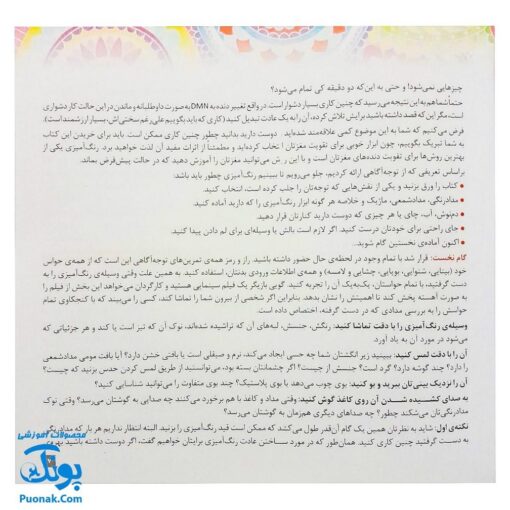 چیزهایی نمی‌شود! و حتی به این‌که دو دقیقه کی تمام می‌شود؟
حتماً شما هم به این نتیجه می‌رسید که چنین کاری بسیار دشوار است. در واقع تغییر دنده به DMN به صورت داوطلبانه و ماندن در این حالت کار دشواری
است، مگر این‌که قصد داشته باشید برایش تلاش کرده، آن را به یک عادت تبدیل کنید! (کاری که باید بگوییم علی‌رغم سختی‌اش، بسیار ارزشمند است).
فرض می‌کنیم که شما به این موضوع کمی علاقه‌مند شده‌اید دوست دارید بدانید چطور چنین کاری ممکن است. باید برای خریدن این کتاب
به شما تبریک بگوییم، چون ابزار خوبی برای تقویت مغزتان انتخاب کرده‌اید و مطمئناً از اثرات مفید آن لذت خواهید برد. رنگ‌آمیزی یکی از
بهترین روش‌ها برای تقویت دنده‌های مغزتان است و با این روش می‌توانید مغزتان را آموزش دهید که در حالت پیش‌فرض بماند.
براساس تعریفی که از توجه‌آگاهی ارائه کردیم، جلو می‌رویم تا ببینیم رنگ‌آمیزی چطور باید باشد:
• کتاب را ورق بزنید و یکی از نقش‌هایی که توجه‌تان را جلب کرده است، انتخاب کنید.
• مدادرنگی، مدادشمعی، ماژیک و خلاصه هر گونه ابزار رنگ‌آمیزی را که دارید آماده کنید.
• دم‌نوش، آب، چای یا هر چیزی که دوست دارید کنارتان قرار دهید.
• جای راحتی برای خودتان درست کنید. اگر لازم است بالش یا وسیله‌ای برای لم دادن پیدا کنید.
• اکنون آماده‌ی نخستین گام شوید...
گام نخست: قرار شد با تمام وجود در لحظه‌ی حال حضور داشته باشید. راز و رمز همه‌ی تمرین‌های توجه‌آگاهی این است که از همه‌ی حواس
خود (بینایی، شنوایی، بویایی، چشایی و لامسه) و همه‌ی اطلاعات ورودی بدنتان، استفاده کنید. به همین علت وقتی وسیله‌ی رنگ‌آمیزی را به
دست گرفتید، با تمام حواستان، یک‌به‌یک آن را تجربه کنید. گویی بازیگر یک فیلم سینمایی هستید و کارگردان می‌خواهد این بخش از فیلم را
به صورت آهسته پخش کند تا اهمیتش را نشان بدهد. بنابراین اگر شخصی از بیرون شما را تماشا کند، کسی را می‌بیند که با کنجکاوی تمام
حواسش را به بررسی مدادی که در دست گرفته، اختصاص داده است.
وسیله‌ی رنگ‌آمیزی را با دقت تماشا کنید: رنگش، جنسش، لبه‌های آن که تراشیده شده‌اند، نوک آن که تیز است یا کند و هر جزئیاتی که
می‌شود در مورد آن به یاد آورد.
آن را با دقت لمس کنید: ببینید زیر انگشتان شما چه حسی ایجاد می‌کند، نرم و صیقلی است یا بافتی خشن دارد؟ آیا بافت مومی مدادشمعی
را دارد؟ چند گوشه دارد؟ گرد است؟ جنسش از چیست؟ اگر چشمانتان بسته بود، می‌توانستید از طریق لمس کردن حدس بزنید که چیست؟
آن را نزدیک بینی‌تان ببرید و بو کنید: بوی چوب می‌دهد یا بوی پلاستیک؟ چند بوی متفاوت را می‌توانید شناسایی کنید؟
به صدای کشیده شدن آن روی کاغذ گوش کنید: وقتی مداد و کاغذ با هم برخورد می‌کنند چه صدایی به گوشتان می‌رسد؟ وقتی نوک
مدادرنگی‌تان می‌شکند چطور؟ چه صداهای دیگری همزمان به گوشتان می‌رسد؟
نکته‌ی اول: شاید به نظرتان همین یک گام آن‌قدر طول می‌کشد که ممکن است قید رنگ‌آمیزی را بزنید. البته انتظار نداریم هر بار که مدادرنگی
به دست گرفتید چنین کاری کنید. همان‌طور که در مورد ساختن عادت رنگ‌آمیزی برایتان خواهیم گفت، اگر دوست داشته باشید
محصولات آموزشی
پونک
Puonak.Com